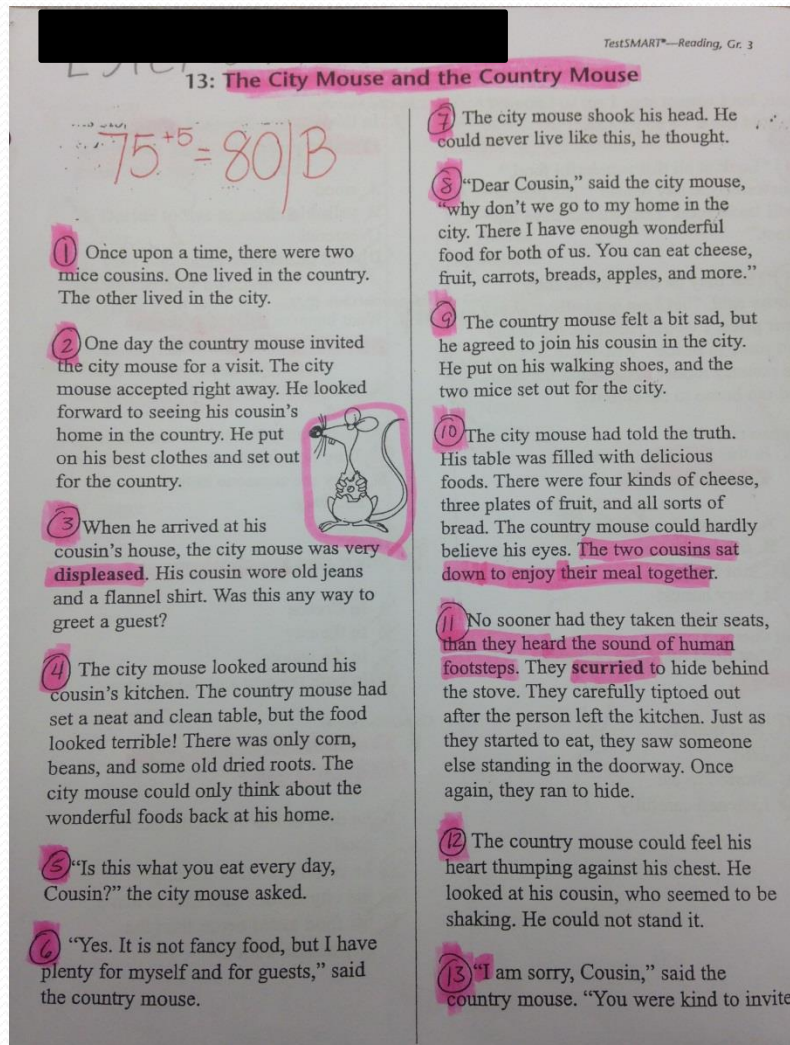 TestSMART®—Reading, Gr. 3
13: The City Mouse and the Country Mouse
75 +5 = 80/B
1 Once upon a time, there were two
mice cousins. One lived in the country.
The other lived in the city.
2 One day the country mouse invited
the city mouse for a visit. The city
mouse accepted right away. He looked
forward to seeing his cousin's
home in the country. He put
on his best clothes and set out
for the country.
3 When he arrived at his
cousin's house, the city mouse was very
displeased. His cousin wore old jeans
and a flannel shirt. Was this any way to
greet a guest?
4 The city mouse looked around his
cousin's kitchen. The country mouse had
set a neat and clean table, but the food
looked terrible! There was only corn,
beans, and some old dried roots. The
city mouse could only think about the
wonderful foods back at his home.
5 "Is this what you eat every day,
Cousin?" the city mouse asked.
6 "Yes. It is not fancy food, but I have
plenty for myself and for guests," said
the country mouse.
7 The city mouse shook his head. He
could never live like this, he thought.
8 "Dear Cousin," said the city mouse,
"why don't we go to my home in the
city. There I have enough wonderful
food for both of us. You can eat cheese,
fruit, carrots, breads, apples, and more."
9 The country mouse felt a bit sad, but
he agreed to join his cousin in the city.
He put on his walking shoes, and the
two mice set out for the city.
10 The city mouse had told the truth.
His table was filled with delicious
foods. There were four kinds of cheese,
three plates of fruit, and all sorts of
bread. The country mouse could hardly
believe his eyes. The two cousins sat
down to enjoy their meal together.
11 No sooner had they taken their seats,
than they heard the sound of human
footsteps. They scurried to hide behind
the stove. They carefully tiptoed out
after the person left the kitchen. Just as
they started to eat, they saw someone
else standing in the doorway. Once
again, they ran to hide.
12 The country mouse could feel his
heart thumping against his chest. He
looked at his cousin, who seemed to be
shaking. He could not stand it.
13 "I am sorry, Cousin," said the
country mouse. "You were kind to invite